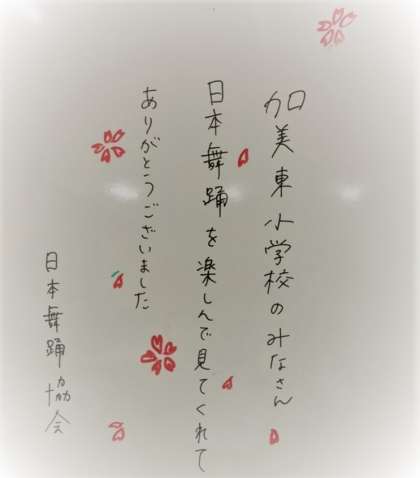 加美東小学校のみなさん
日本舞踊を楽しんで見てくれて
ありがとうございました
日本舞踊協会